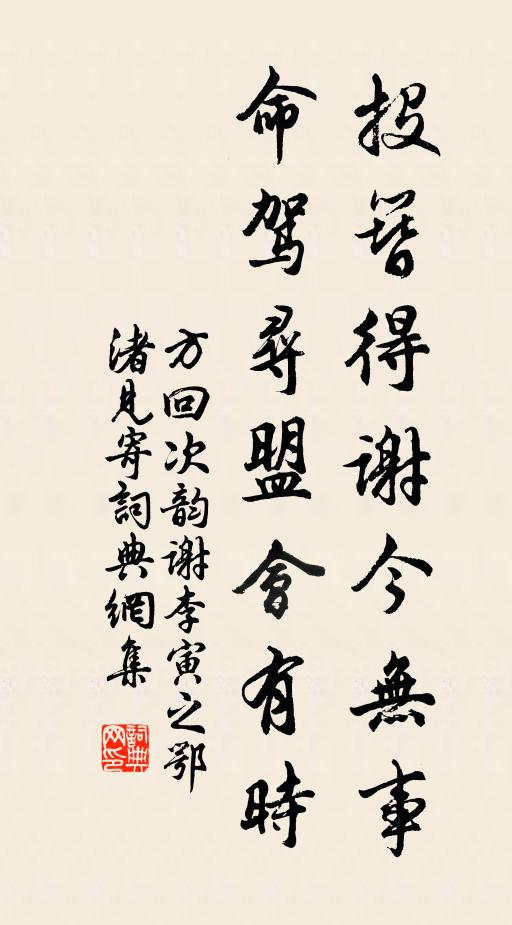 投簪得謝今無事
命駕尋盟會有時
方回次韵谢李寅之鄂
渚見寄詞典網集
詞典网印